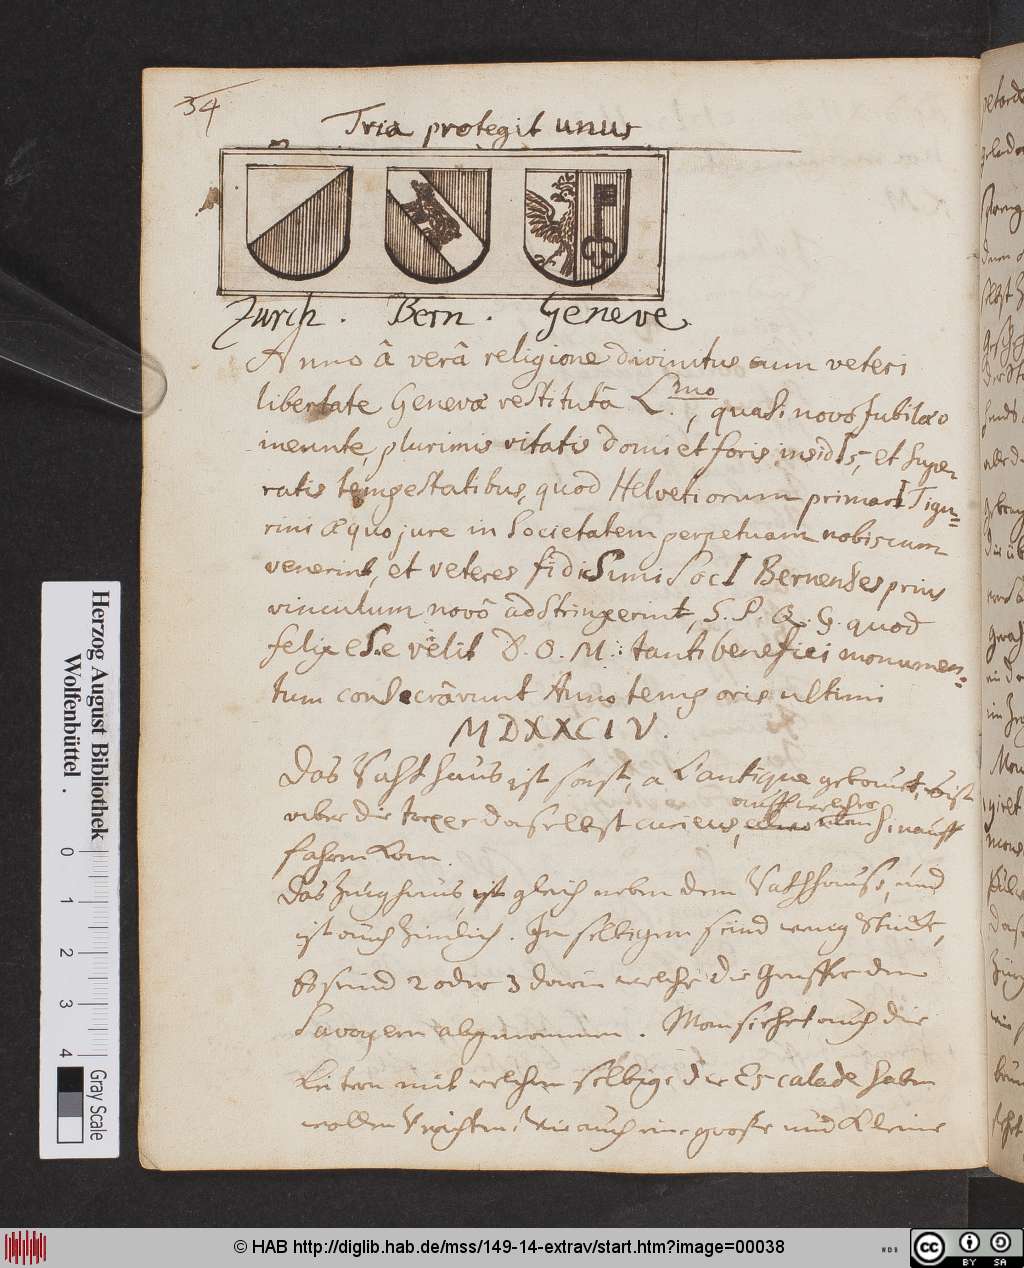 34
Tria protegit unus
Zurch . Bern . Geneve
Anno â verâ religione divinitus cum veteri
libertate Genevæ restitutâ L.mo, quasi novô Jubilæo
ineunte, plurimis vitatis domi et foris insidIs, et supe-
ratis tempestatibus, quod Helvetiorum primarI Tigu=
rini æquo jure in Societatem perpetuam nobiscum
venerint, et veteres fidiSsimi SocI Bernenses prius
vinculum novô adstrinxerint, S. P. Q. G. quod
felix eSse velit D. O. M: tanti beneficii monumen=
tum consecrârunt Anno temporis ultimi
MDXXCIV.
Das Rahthaus ist sonst, a L'antique gebauet, undt ist
uber die treper daselbst curieus, auff welcher man hinauff
fahren kan.
Das Zeughaus, ist gleich neben dem Rahthause, und
ist auch zimlich. In selbigem seind wenig Stücke,
es seind 2 oder 3 darin welche die Genffer den
Savoyern abgenommen. Man siehet auch die
Leitern mit welchen selbige die Escalade haben
wollen verrichten, wie auch eine grosse und kleine
Herzog August Bibliothek
Wolfenbüttel .
0 1 2 3 4
Gray Scale
© HAB http://diglib.hab.de/mss/149-14-extrav/start.htm?image=00038
cc BY SA